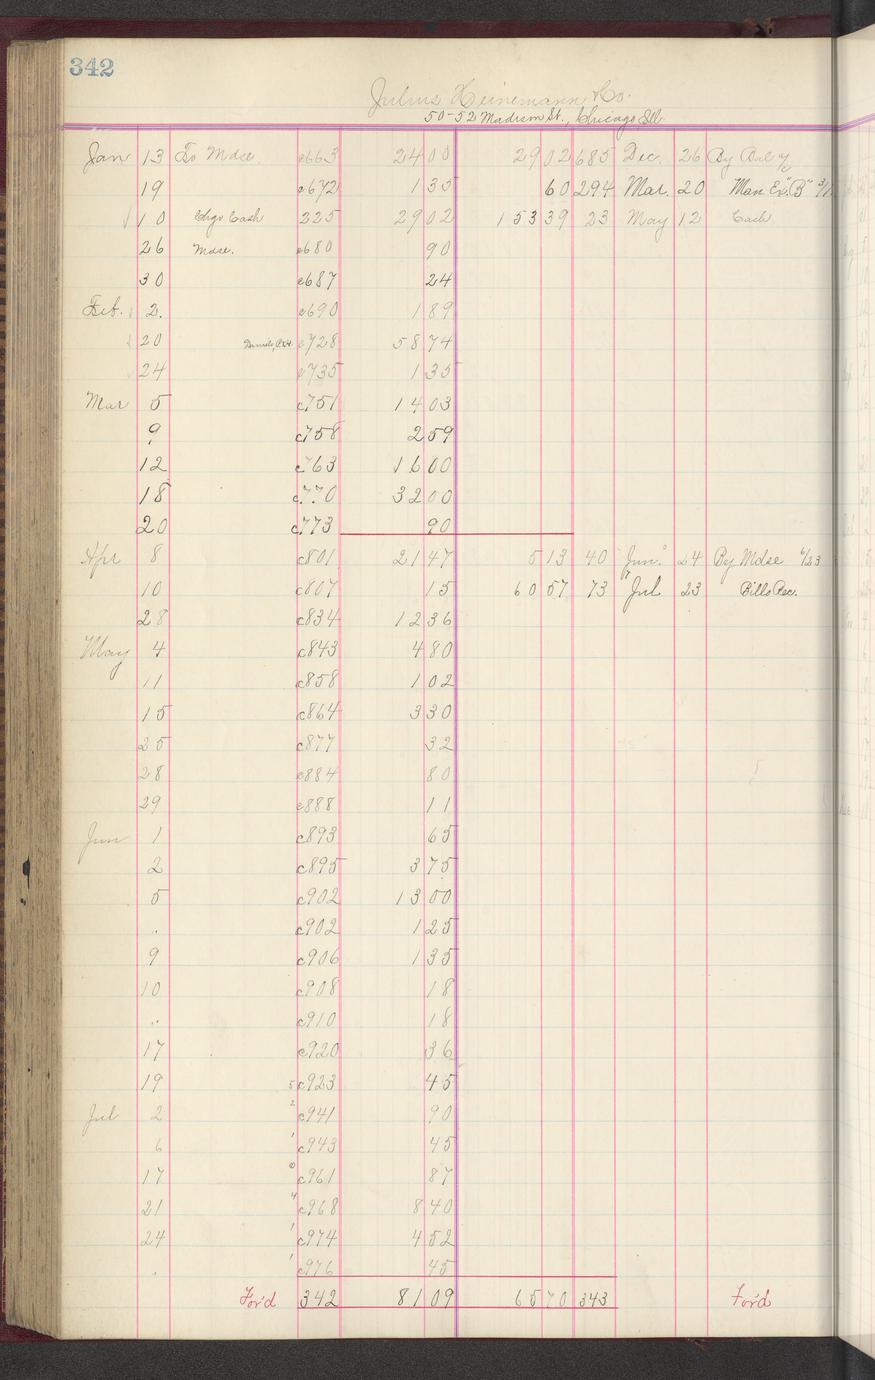 342
Julius Heinemann & Co.
50-52 Madison St., Chicago Ill
Jan 13 To Mdse. c663 24 00 29 02 685 Dec. 26 By Bal
19 c672 1 35 60 294 Mar. 20 Man Ex. "B"
10 Chgs Cash 225 29 02 153 39 23 May 12 Cash
26 Mdse. c680 90
30 c687 24
Feb. 2. c690 1 89
20 c728 58 74
24 c735 1 35
Mar 5 c751 14 03
9 c758 2 59
12 c763 16 00
18 c770 32 00
20 c773 90
Apr 8 c801 21 47 5 13 40 Jun. 24 By Mdse 4/23
10 c807 15 60 57 73 Jul 23 Bills Rec.
28 c834 12 36
May 4 c843 4 80
11 c858 1 02
15 c864 3 30
25 c877 32
28 c884 80
29 c888 11
Jun 1 c893 65
2 c895 3 75
5 c902 13 00
" c902 1 25
9 c906 1 35
10 c908 18
" c910 18
17 c920 36
19 5 c923 45
Jul 2 2 c941 90
6 1 c943 45
17 0 c961 87
21 4 c968 8 40
24 1 c974 4 52
" 1 c976 45
For'd 342 81 09 65 70 343 For'd